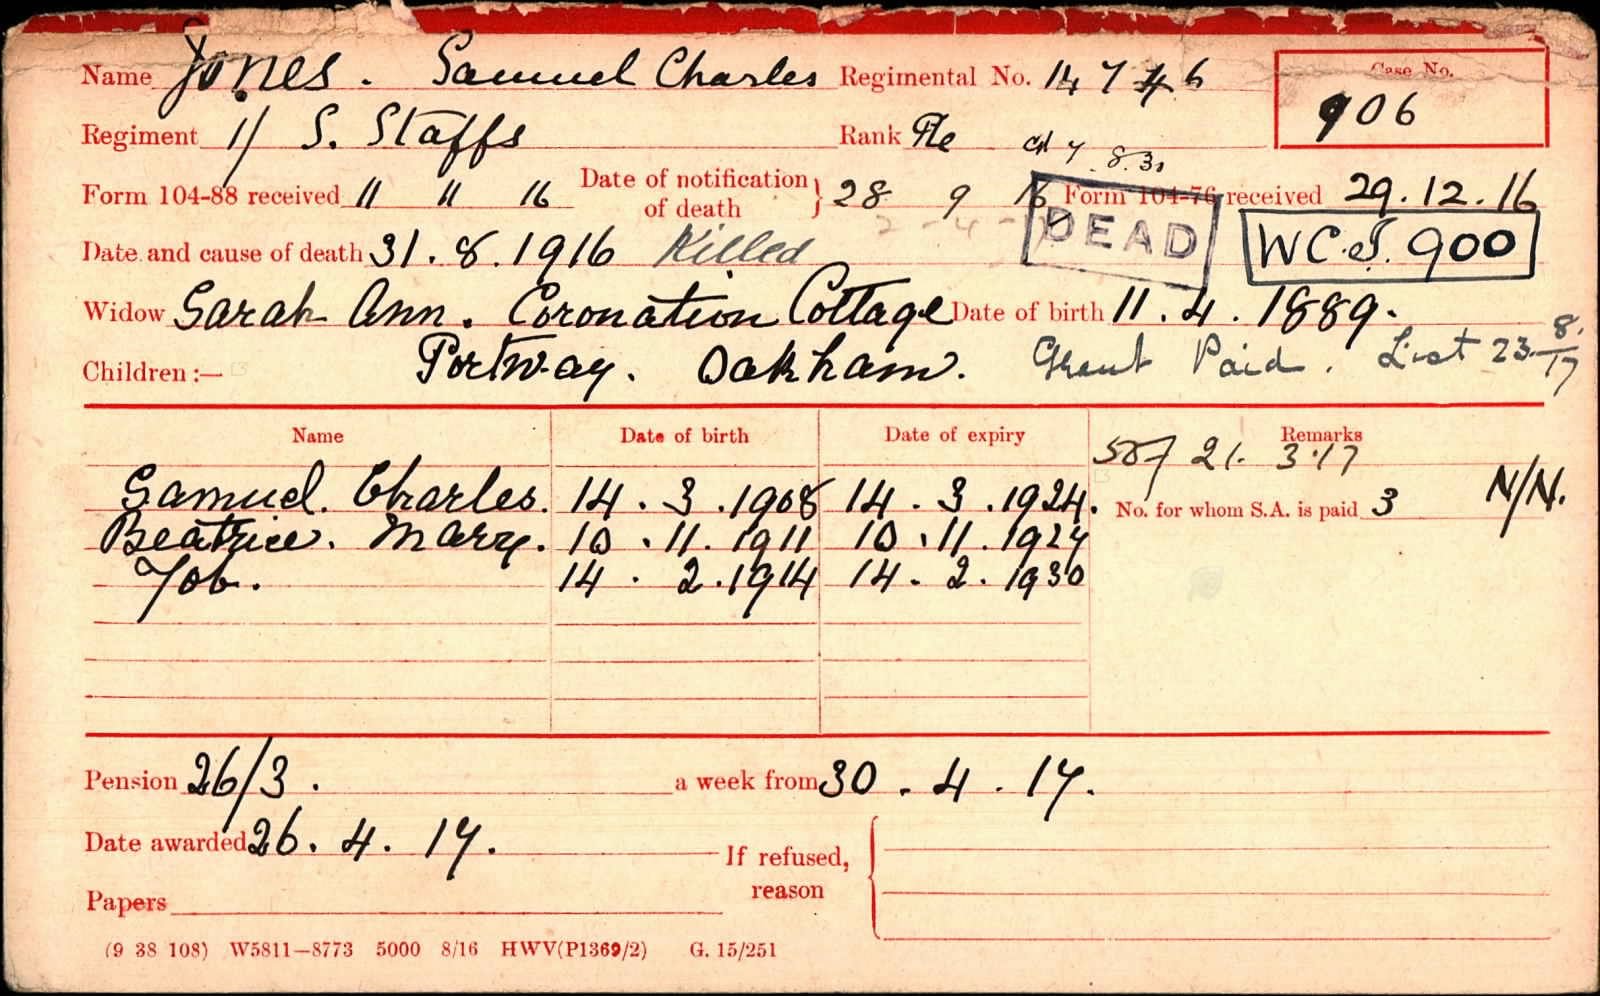 Name Jones. Samuel Charles Regimental No. 14746 Case No.
906
Regiment 1/ S. Staffs Rank Pte
Form 104-88 received 11 11 16 Date of notification of death } 28 9 16 Form 104-76 received 29.12.16
Date and cause of death 31.8.1916 Killed DEAD W.C.S. 900
Widow Sarah Ann. Coronation Cottage Date of birth 11.4.1889.
Children:— Portway. Oakham. Grant Paid. List 23 8/17
Name Date of birth Date of expiry Remarks
587 21. 3.17
Samuel. Charles. 14.3.1908 14.3.1924. No. for whom S.A. is paid 3 N/N.
Beatrice. Mary. 10.11.1911 10.11.1927
Job. 14.2.1914 14.2.1930
Pension 26/3. a week from 30.4.17.
Date awarded 26.4.17. If refused,
reason
Papers
(9 38 108) W5811—8773 5000 8/16 HWV(P1369/2) G. 15/251